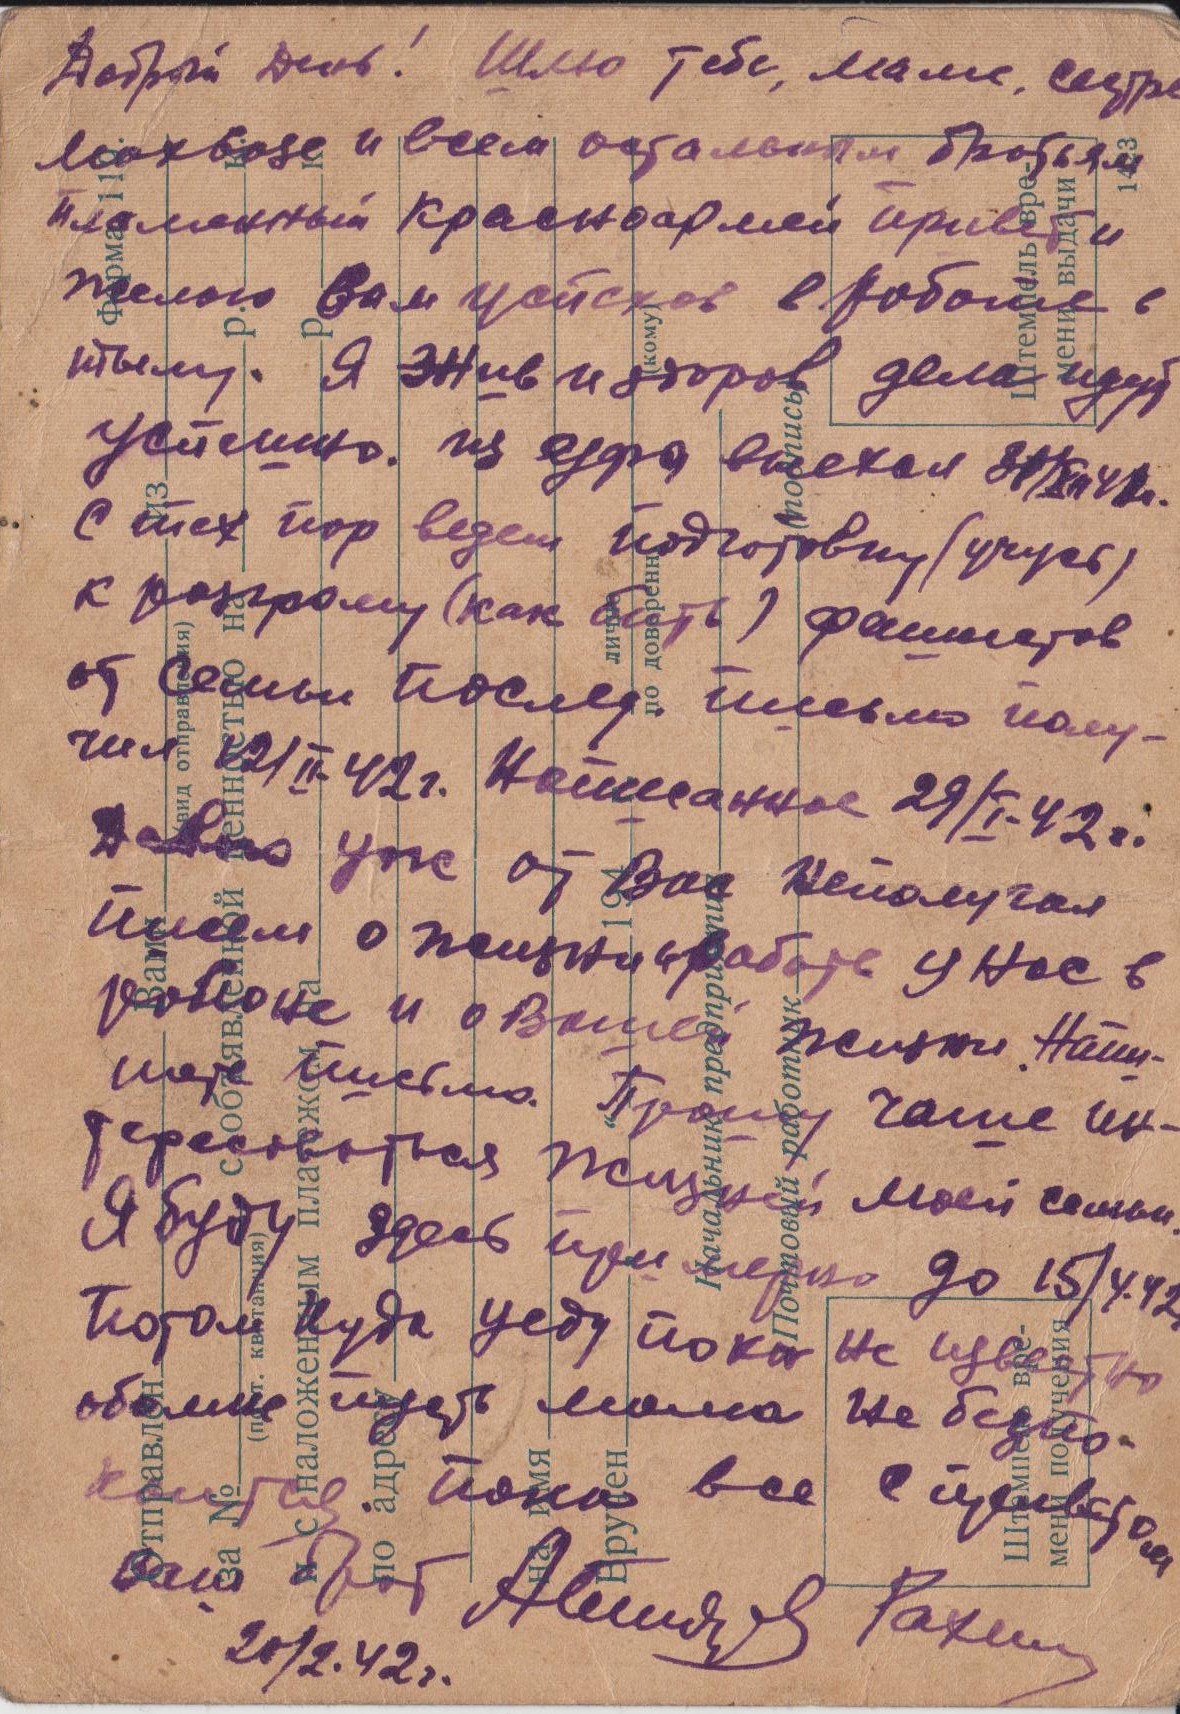 Добрый день! Шлю тебе, маме, сестре
и всем остальным братьям
пламенный красноармей привет и
желаю Вам успехов в работе в
тылу. Я жив и здоров дела идут
успешно. из выехал
С тех пор ведем подготовку (учусь)
к разгрому (как бить) фашистов
от семьи послед. письмо полу-
чил 12/II-42г. Написанное 29/I-42г.
Давно уж от Вас неполучал
писем о жизни и работе у нас в
районе и о Вашей жизни. Напи-
шите письмо. Прошу чаще ин-
тересоваться жизней моей семьи.
Я буду здесь примерно до 15/4.42
Потом куда уеду пока не известно
обомне пусть мама не безпо-
коится. Пока все с приветом
ваш брат
20/2.42г.
Форма
143
Штемпель вре-
мени выдачи
Отправлен Вами из
(вид отправления)
за № р. к
(почт. квитанция)
с объявленной ценностью на
и с наложенным платежом на р. к
по адресу
на имя
Вручен „ 194 лично
по доверенн (кому)
Начальник предприятия
Почтовый работник (подпись)
Штемпель вре-
мени получения